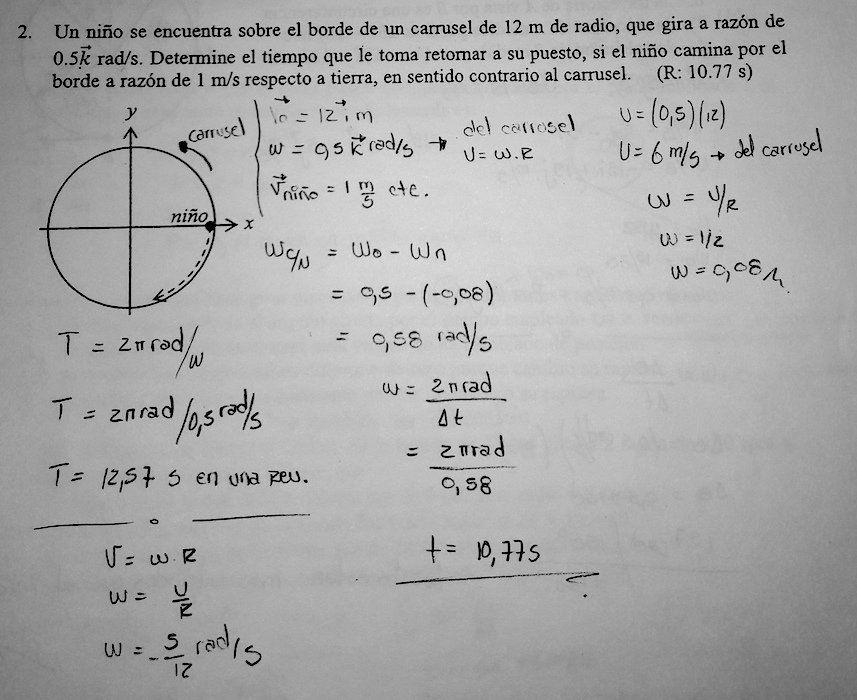 2. Un niño se encuentra sobre el borde de un carrusel de 12 m de radio, que gira a razón de
0.5k⃗ rad/s. Determine el tiempo que le toma retornar a su puesto, si el niño camina por el
borde a razón de 1 m/s respecto a tierra, en sentido contrario al carrusel. (R: 10.77 s)
y
carrusel
niño
x
r⃗o = 12 i⃗ m
ω = 0,5 k⃗ rad/s → del carrusel
U = ω.R
V⃗niño = 1 m/s cte.
U = (0,5)(12)
U = 6 m/s → del carrusel
ω = U/R
ω = 1/12
ω = 0,08
ωc/N = ωo - ωn
= 0,5 - (-0,08)
= 0,58 rad/s
ω = 2π rad / Δt
= 2π rad / 0,58
t = 10,77s
T = 2π rad/ω
T = 2π rad/0,5 rad/s
T = 12,57 s en una rev.
V = ω.R
ω = U/R
ω = - 5/12 rad/s